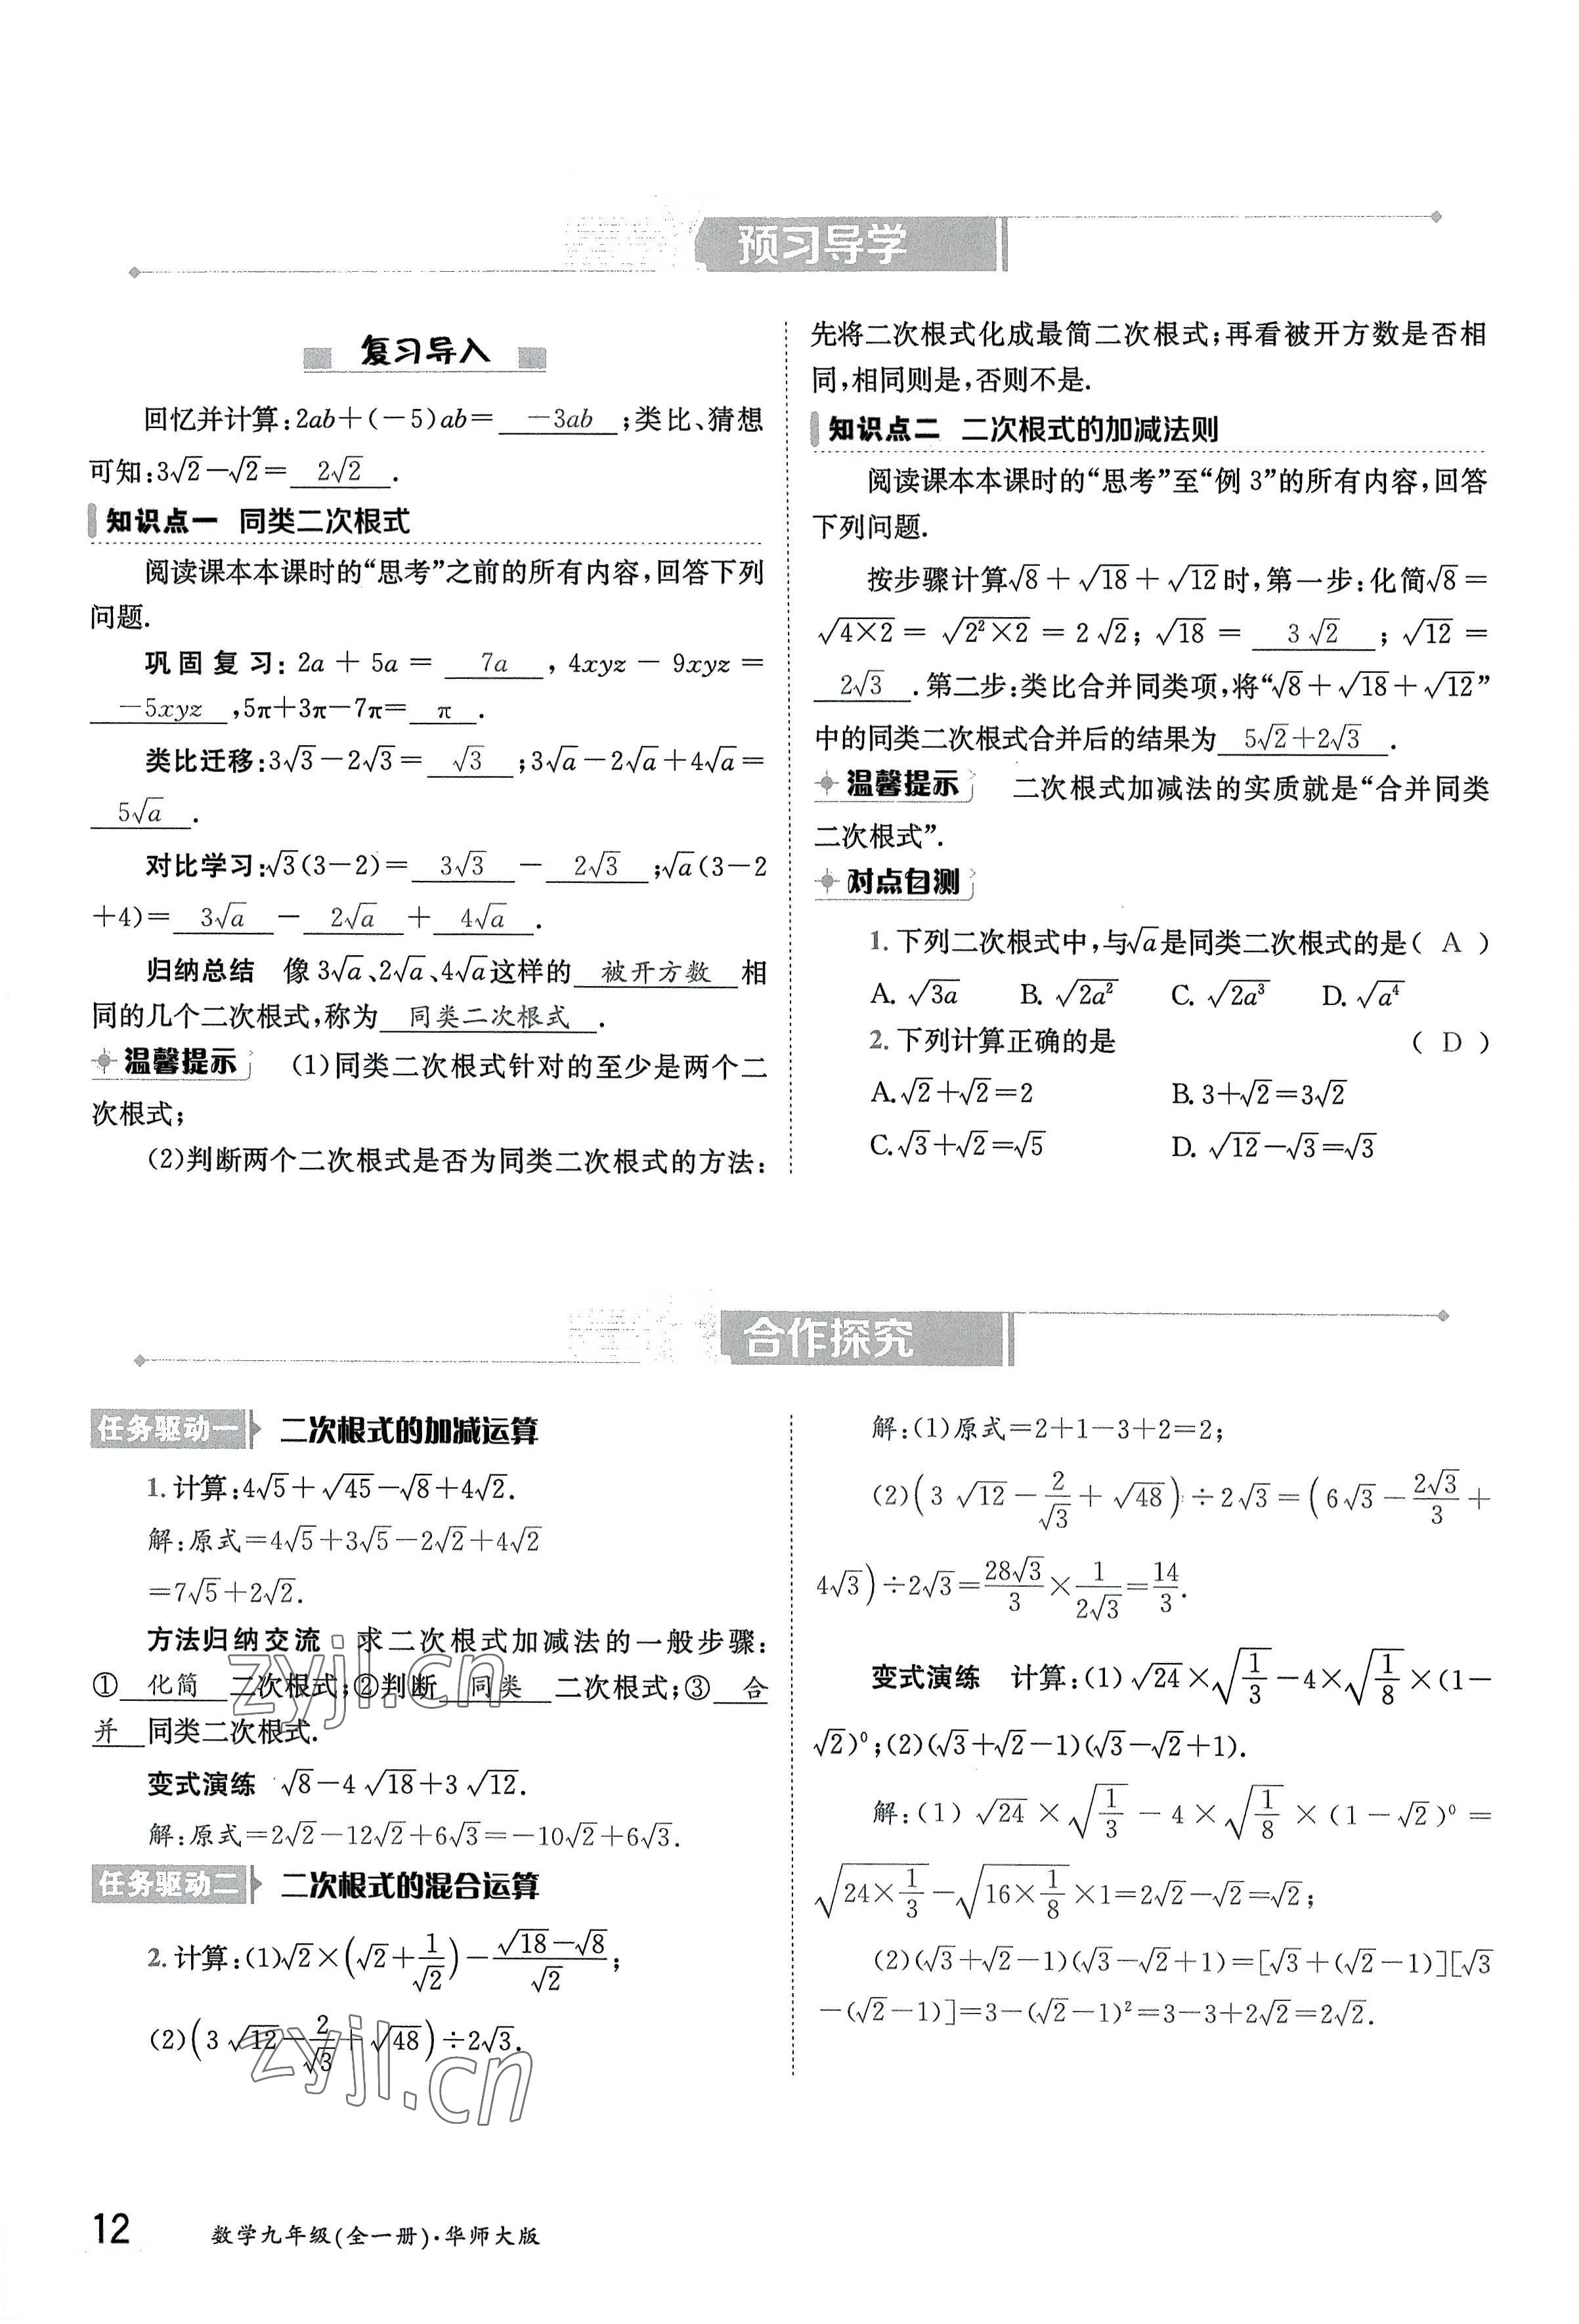 预习导学
复习导入
回忆并计算:2ab+(-5)ab= -3ab ;类比、猜想
可知:3√2-√2= 2√2 .
知识点一 同类二次根式
阅读课本本课时的“思考”之前的所有内容,回答下列
问题.
巩固复习:2a+5a= 7a ,4xyz-9xyz=
-5xyz ,5π+3π-7π= π .
类比迁移:3√3-2√3= √3 ;3√a-2√a+4√a=
5√a .
对比学习:√3(3-2)= 3√3 - 2√3 ;√a(3-2
+4)= 3√a - 2√a + 4√a .
归纳总结 像3√a、2√a、4√a这样的 被开方数 相
同的几个二次根式,称为 同类二次根式 .
温馨提示 (1)同类二次根式针对的至少是两个二
次根式;
(2)判断两个二次根式是否为同类二次根式的方法:
先将二次根式化成最简二次根式;再看被开方数是否相
同,相同则是,否则不是.
知识点二 二次根式的加减法则
阅读课本本课时的“思考”至“例3”的所有内容,回答
下列问题.
按步骤计算√8+√18+√12时,第一步:化简√8=
√(4×2)=√(2²×2)=2√2;√18= 3√2 ;√12=
2√3 .第二步:类比合并同类项,将“√8+√18+√12”
中的同类二次根式合并后的结果为 5√2+2√3 .
温馨提示 二次根式加减法的实质就是“合并同类
二次根式”.
对点自测
1.下列二次根式中,与√a是同类二次根式的是( A )
A.√(3a) B.√(2a²) C.√(2a³) D.√(a⁴)
2.下列计算正确的是 ( D )
A.√2+√2=2 B.3+√2=3√2
C.√3+√2=√5 D.√12-√3=√3
合作探究
任务驱动一 二次根式的加减运算
1.计算:4√5+√45-√8+4√2.
解:原式=4√5+3√5-2√2+4√2
=7√5+2√2.
方法归纳交流 求二次根式加减法的一般步骤:
① 化简 二次根式;②判断 同类 二次根式;③ 合
并 同类二次根式.
变式演练 √8-4√18+3√12.
解:原式=2√2-12√2+6√3=-10√2+6√3.
任务驱动二 二次根式的混合运算
2.计算:(1)√2×(√2+1/√2)-(√18-√8)/√2;
(2)(3√12-2/√3+√48)÷2√3.
解:(1)原式=2+1-3+2=2;
(2)(3√12-2/√3+√48)÷2√3=(6√3-2√3/3+
4√3)÷2√3=28√3/3×1/(2√3)=14/3.
变式演练 计算:(1)√24×√(1/3)-4×√(1/8)×(1-
√2)⁰;(2)(√3+√2-1)(√3-√2+1).
解:(1)√24×√(1/3)-4×√(1/8)×(1-√2)⁰=
√(24×1/3)-√(16×1/8)×1=2√2-√2=√2;
(2)(√3+√2-1)(√3-√2+1)=[√3+(√2-1)][√3
-(√2-1)]=3-(√2-1)²=3-3+2√2=2√2.
zyjl.cn
zyjl.cn
12 数学九年级(全一册)·华师大版